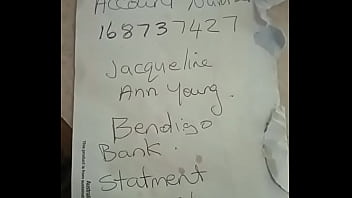 Account Num
168737427
Jacqueline
Ann Young.
Bendigo
Bank.
Statment